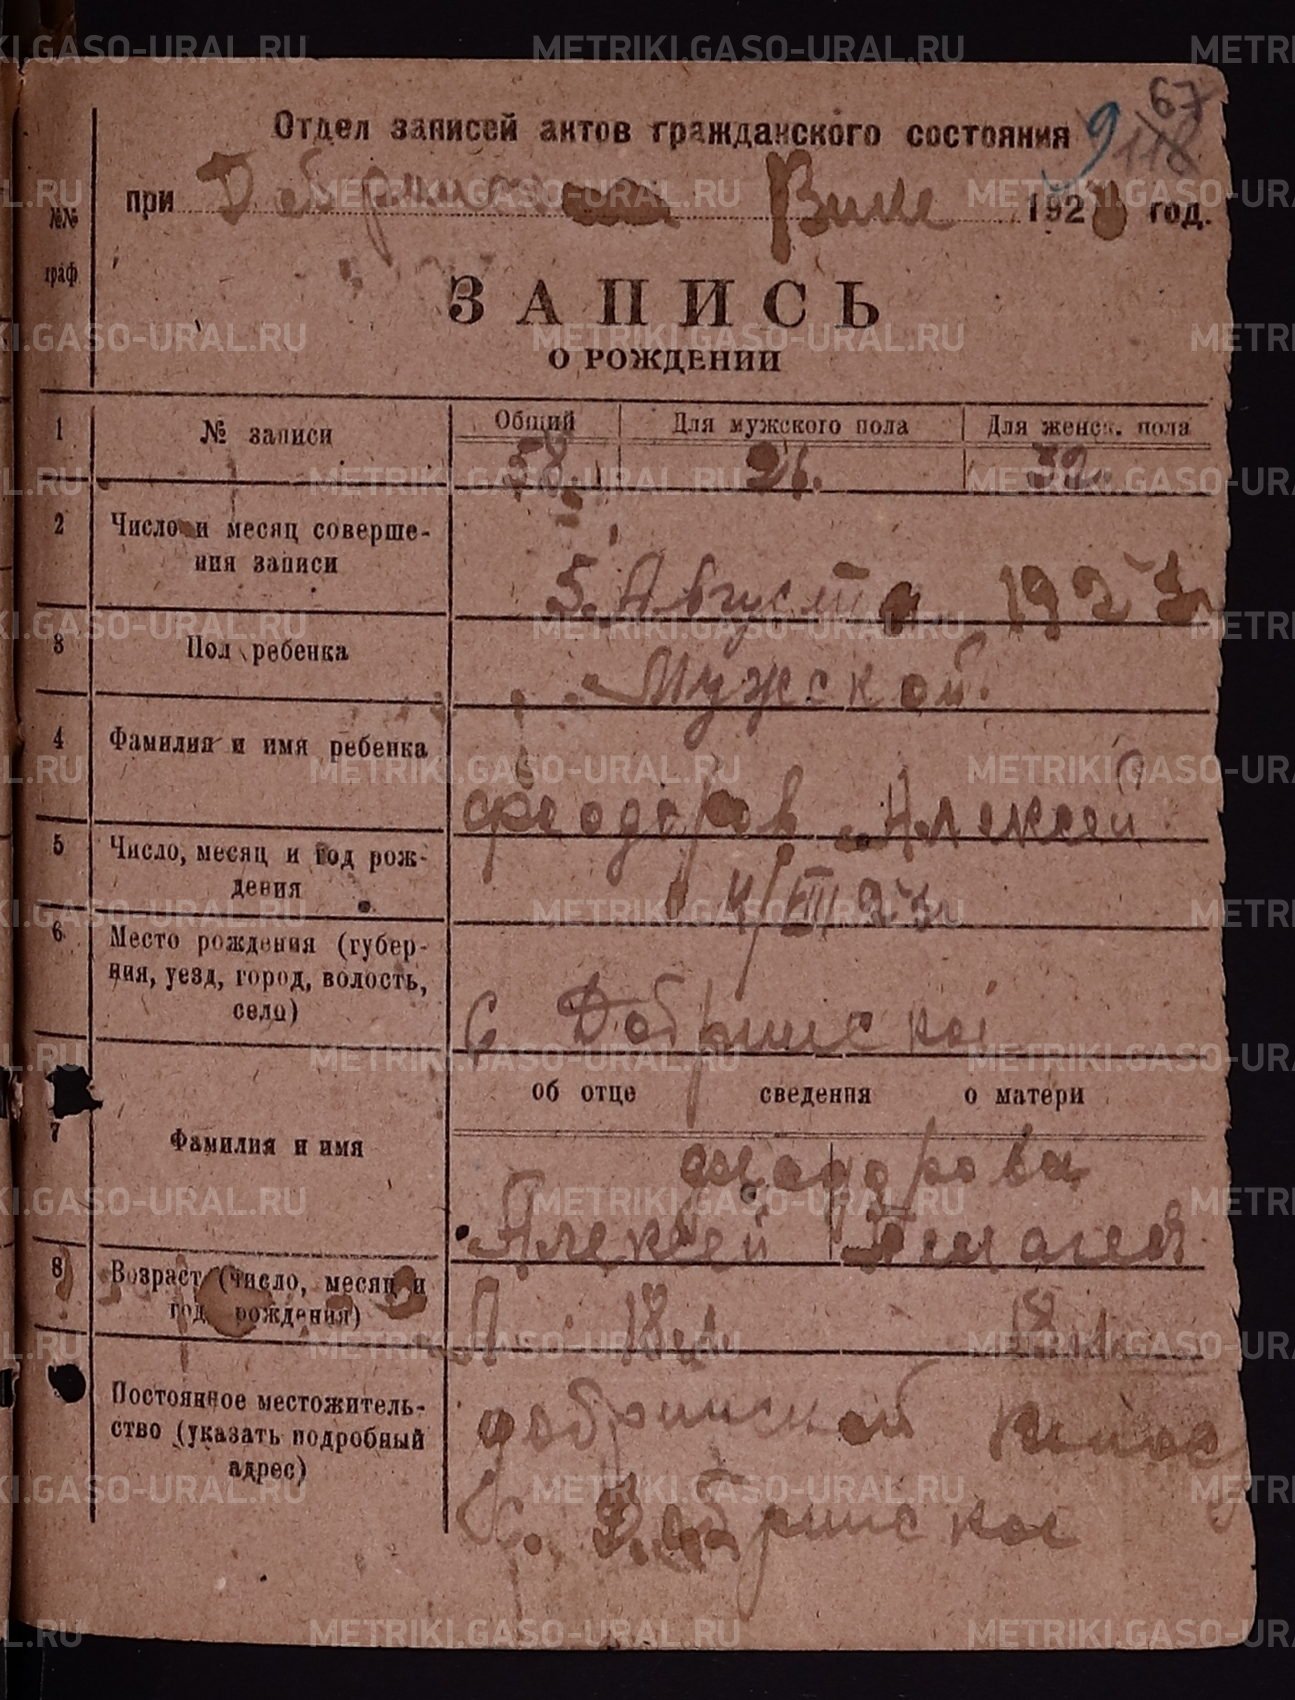 67
9 118
Отдел записей актов гражданского состояния
при Добринском Вике 192 год.
№№ граф
ЗАПИСЬ
О РОЖДЕНИИ
1 № записи Общий Для мужского пола Для женск. пола
58. 26. 32
2 Число и месяц соверше-
ния записи
5. Августа 1923
3 Пол ребенка Мужской.
4 Фамилия и имя ребенка
Феодоров Алексей
5 Число, месяц и год рож-
дения
4/VIII 23
6 Место рождения (губер-
ния, уезд, город, волость,
село)
С Добринское
об отце сведения о матери
7 Фамилия и имя
Феодорова
Алексей
8 Возраст (число, месяц и
год рождения)
Л 18 л 18 л
Постоянное местожитель-
ство (указать подробный
адрес)
Добринской
С. Добринское
METRIKI.GASO-URAL.RU